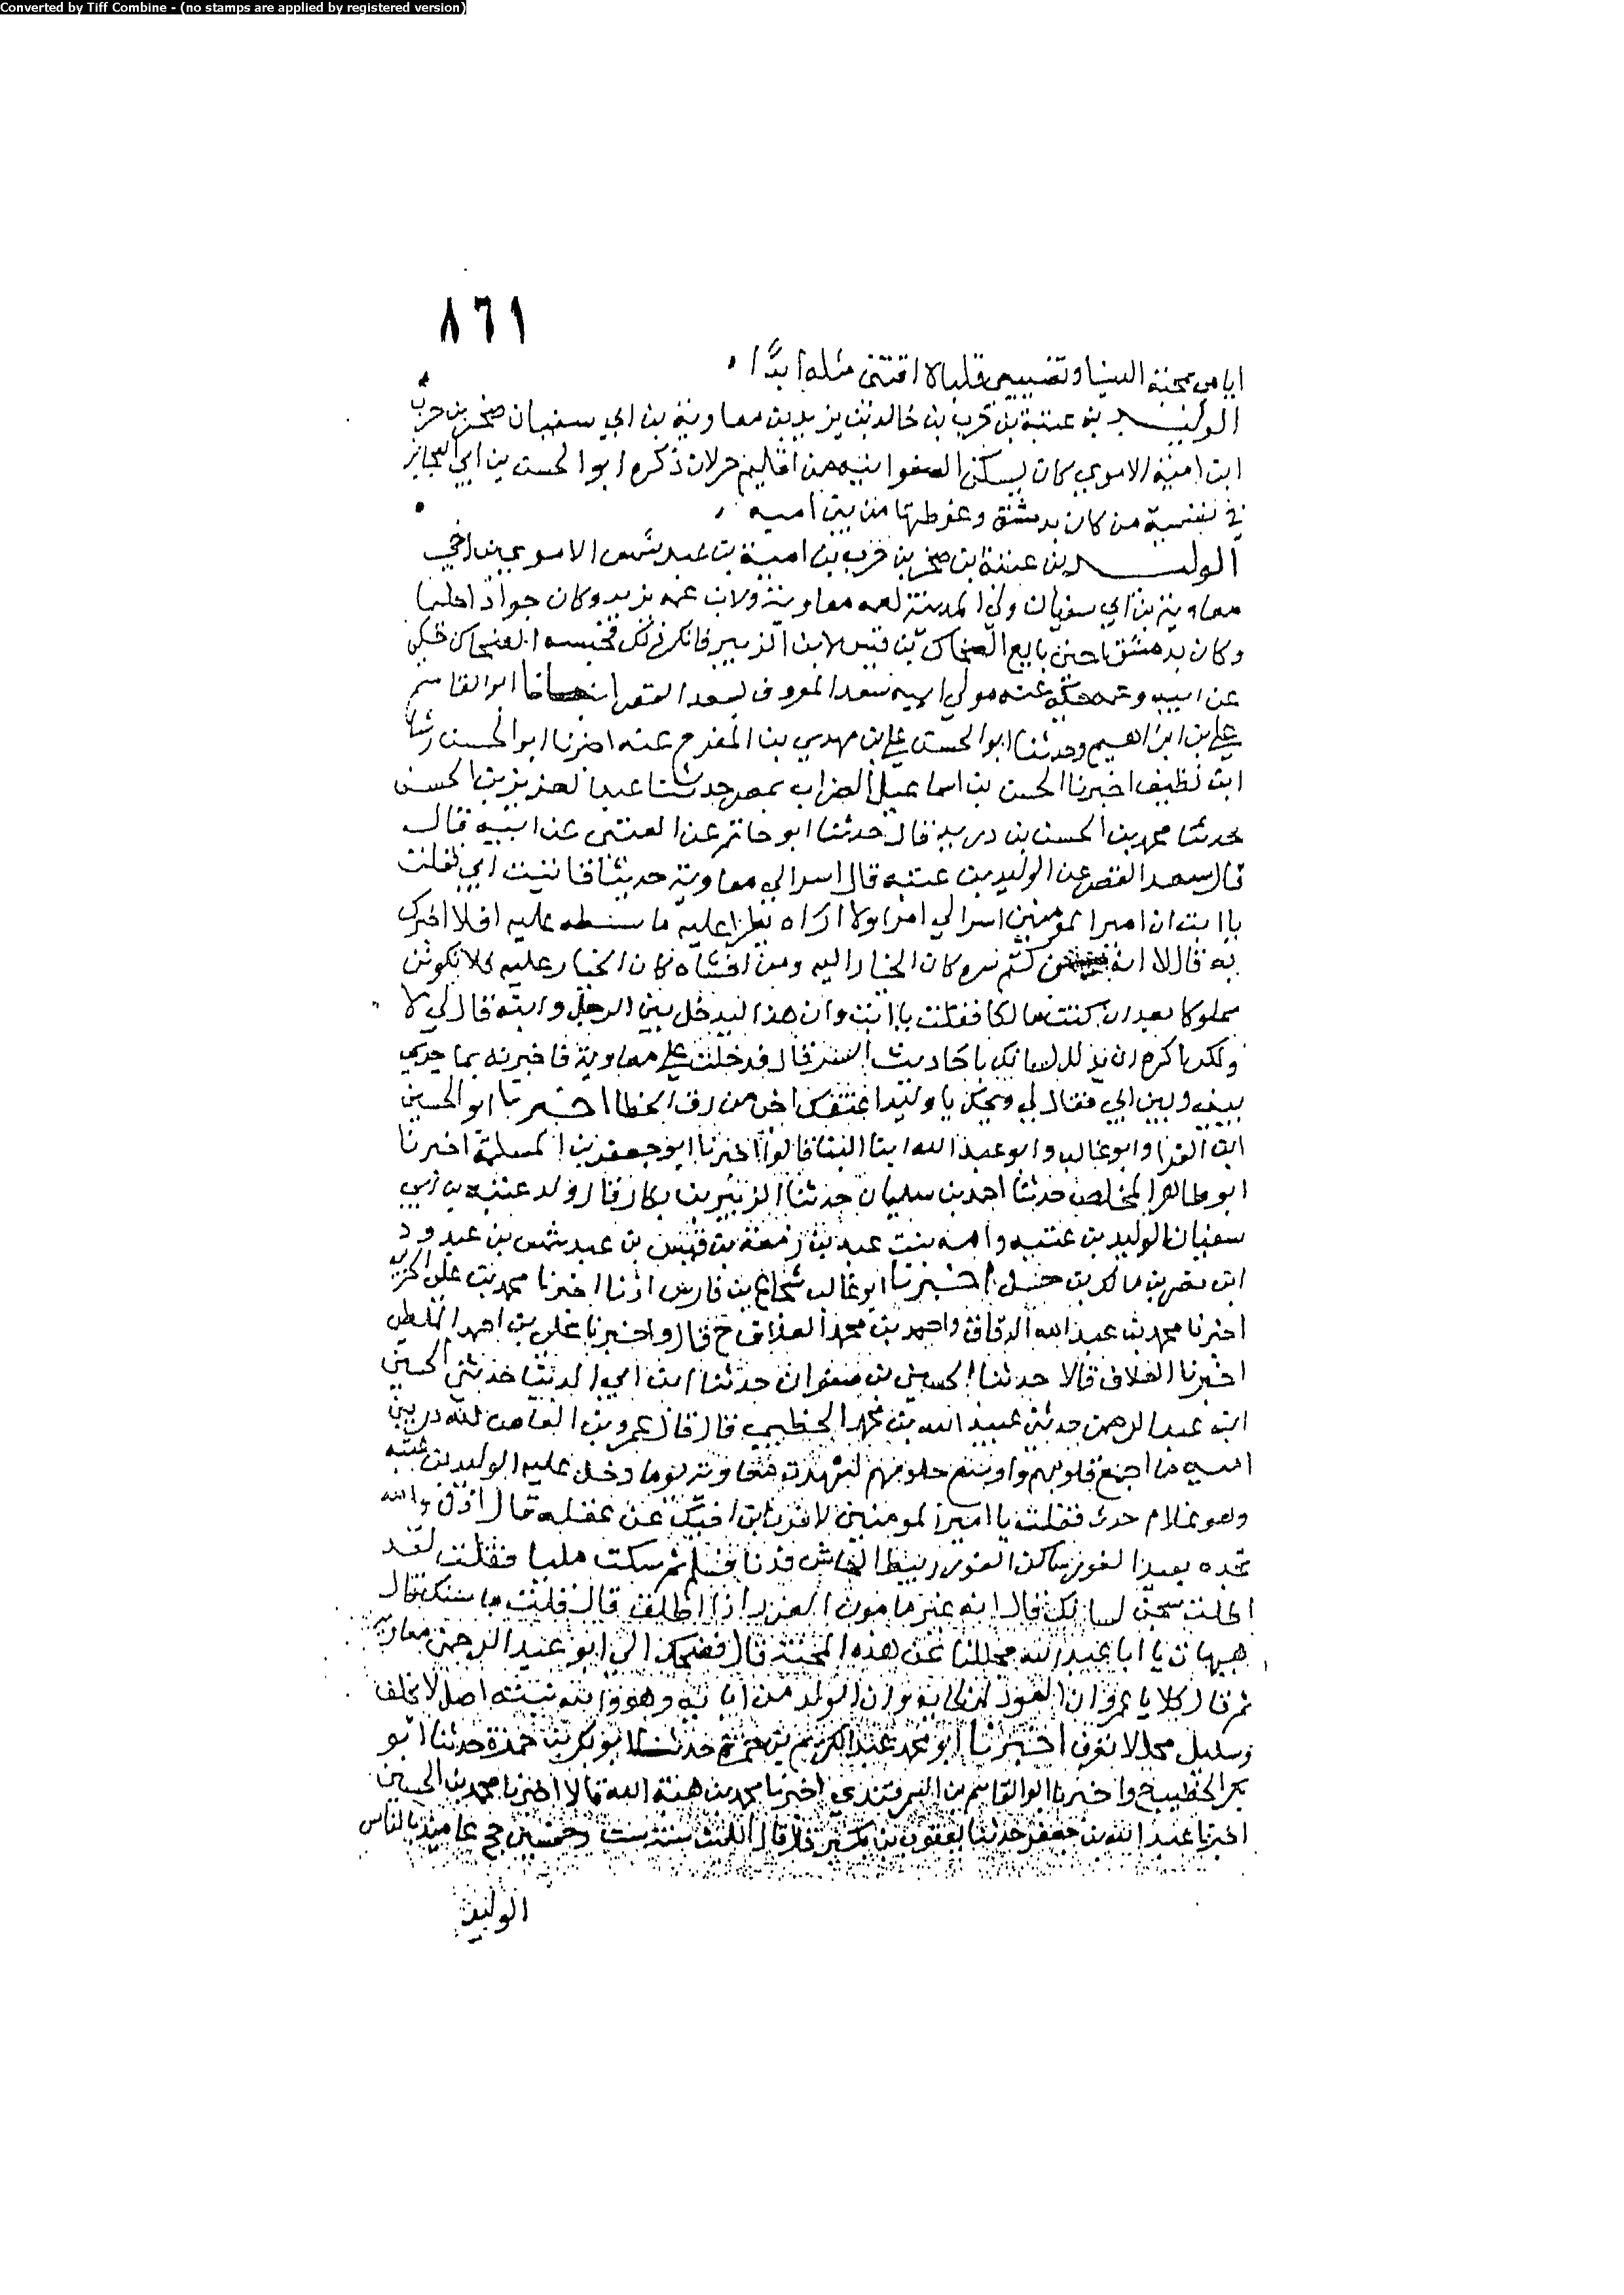 Converted by Tiff Combine - (no stamps are applied by registered version)
٨٦١
ايا من محنة الدنيا وتضييعي قلبا لا اقتنى مثله ابدًا
الوليد بن عتبة بن حرب بن خالد بن يزيد بن معاوية بن ابي سفيان صخر بن حرب
ابن امية الاموي كان يسكن الصفوانيه من اقليم حرلان ذكره ابو الحسن بن ابي العجايز
في تسمية من كان بدمشق وغوطتها من بني اميه
الوليد بن عتبة ابن صخر بن حرب بن امية بن عبد شمس الاموي بن اخي
معاوية بن ابي سفيان ولي المدينة لعمه معاوية ولابن عمه يزيد وكان جوادا حليما
وكان بدمشق حين بايع الضحاك بن قيس لابن الزبير فانكر ذلك فحبسه الضحاك حكى
عن ابيه وعمه حكى عنه مولي ابيه سعد المعروف بسعد القصر انبانا ابو القاسم
علي بن ابراهيم وحدثنا ابو الحسن علي بن مهدي بن المفرج عنه اخبرنا ابو الحسن رشا
ابن نظيف اخبرنا الحسن بن اسماعيل الضراب بمصر حدثنا عبد العزيز بن الحسن
حدثنا محمد بن الحسن بن دريد قال حدثنا ابو حاتم عن العتبي عن ابيه قال
قال سعد القصر عن الوليد بن عتبه قال اسر الي معاوية حديثا فاتيت ابي فقلت
يا ابت ان امير المومنين اسر الي امرا ولا اراه يطوي عليه ما بسطه عليه افلا اخبرك
به قال لا انه من كتم سره كان الخيار اليه ومن افشاه كان الخيار عليه فلا تكونن
مملوكا بعد ان كنت مالكا فقلت يا ابت وان هذا ليدخل بين الرجل وابنه قال لي لا
ولكن اكره ان تذلل لسانك باحاديث السر قال فدخلت علي معاوية فاخبرته بما جري
بيني وبين ابي فقال لي ويحك يا وليد اعتقك اخي من رق الخطا اخبرنا ابو الحسين
ابن الفرا وابو غالب وابو عبد الله ابنا البنا قالوا اخبرنا ابو جعفر بن المسلمة اخبرنا
ابو طاهر المخلص حدثنا احمد بن سليمان حدثنا الزبير بن بكار قال ولد عتبه بن ابي
سفيان الوليد بن عتبه وامه بنت عبد بن زمعة بن قيس بن عبد شمس بن عبد ود
ابن نصر بن مالك بن حسل اخبرنا ابو غالب شجاع بن فارس اذنا اخبرنا محمد بن علي الحربي
اخبرنا محمد بن عبد الله الدقاق واحمد بن محمد العلاف ح قال واخبرنا علي بن احمد الملطي
اخبرنا العلاف قالا حدثنا الحسين بن صفوان حدثنا ابن ابي الدنيا حدثني الحسين
ابن عبد الرحمن حدثني عبيد الله بن محمد الخطيبي قال قال عمرو بن العاص لله در بني
اميه ما اجمع قلوبهم واوسع حلومهم لشهدت معاوية يوما دخل عليه الوليد بن عتبه
وهو غلام حدث فقلت يا امير المومنين لافرن ابن اخيك عن عقله قال اذن والله
تجده بعيد الغور ساكن الفور ربيط الجاش فدنا فسلم ثم سكت مليا فقلت لقد
اطلت سجن لسانك قال انه غير مامون الضرر اذا اطلق قال قلت ما سنك قال
هيهات يا ابا عبد الله جللنا عن هذه المحنة قال فضحك الي ابو عبد الرحمن معاويه
ثم قال كلا يا عمرو ان العود لمن لحايه وان الولد من ابايه وهو والله نبتة اصل لا يخلف
وسليل محل لا يغرق اخبرنا ابو محمد عبد الكريم بن حمزة حدثنا ابو بكر بن حمزة حدثنا ابو
بكر الخطيب ح واخبرنا ابو القاسم بن السمرقندي اخبرنا محمد بن هبة الله قالا اخبرنا محمد بن الحسين
اخبرنا عبد الله بن جعفر حدثنا يعقوب بن بكير قال قال الليث سنة ست وخمسين حج عاميذ بالناس
الوليد